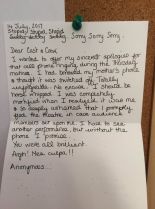 14 July, 2017
Stupid, Stupid, Stupid
Sorry, Sorry, Sorry, Sorry Sorry Sorry.
Dear Cast & Crew,
I wanted to offer my sincerest apologies for
that cell phone ringing during the Thursday
matinee. I had borrowed my mother's phone
& thought it was switched off. Totally
unforgivable. No excuse. I should be
horse whipped. I was completely
mortified when I realized it was me
& so deeply ashamed that I promptly
fled the theatre, in case audience
members saw me. I hope to see
another performance, but without the
phone I promise.
You were all brilliant.
Aagh! Mea culpa!!!
Anonymous...